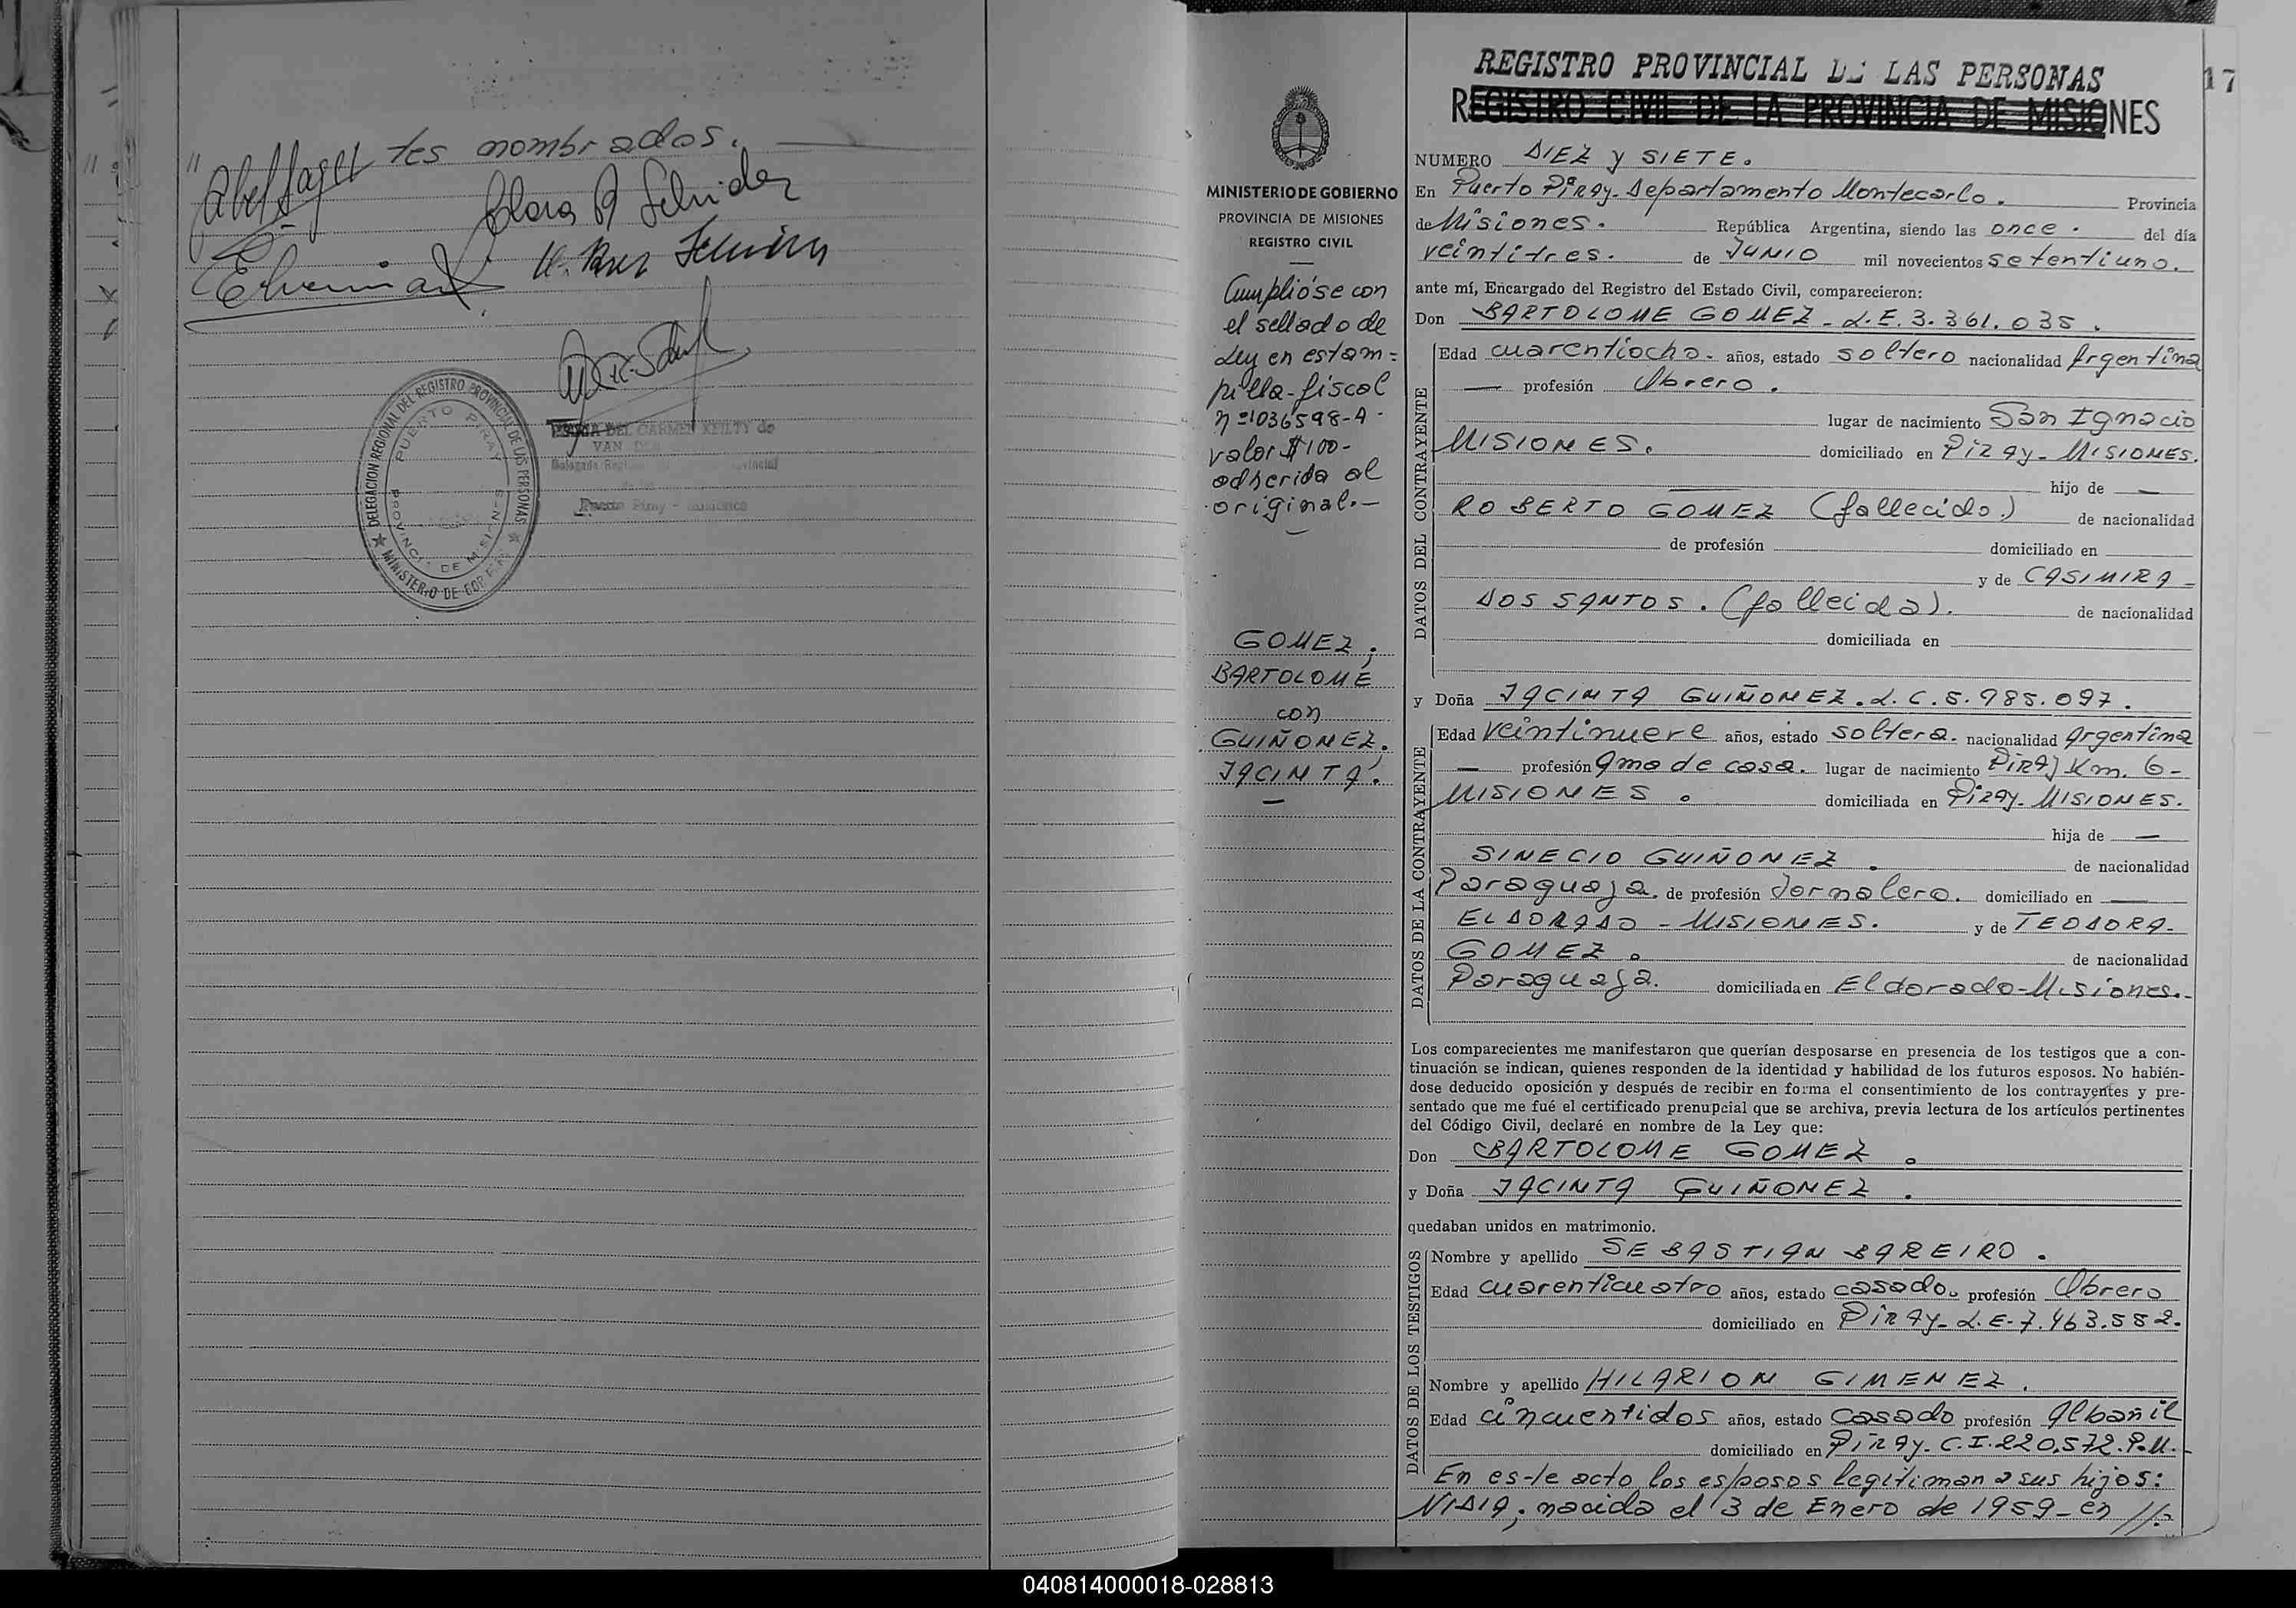 " tes nombrados.
Abel Faget
Clara R Schneider
DELEGACION REGIONAL DEL REGISTRO PROVINCIAL DE LAS PERSONAS
PUERTO PIRAY
PROVINCIA DE MISIONES
MINISTERIO DE GOBIERNO
DEL CARMEN KEILTY de
VAN
Puerto Piray - Misiones
MINISTERIO DE GOBIERNO
PROVINCIA DE MISIONES
REGISTRO CIVIL
Cumplióse con
el sellado de
Ley en estam-
pilla-fiscal
nº1036598-A-
valor $100-
adherida al
original.-
GOMEZ;
BARTOLOME
con
GUIÑONEZ;
JACINTA.
REGISTRO PROVINCIAL DE LAS PERSONAS
17
REGISTRO CIVIL DE LA PROVINCIA DE MISIONES
NUMERO DIEZ y SIETE.
En Puerto Piray-Departamento Montecarlo. Provincia
de Misiones. República Argentina, siendo las once. del día
veintitres. de JUNIO mil novecientos setentiuno.
ante mí, Encargado del Registro del Estado Civil, comparecieron:
Don BARTOLOME GOMEZ - L.E. 3.361.035.
DATOS DEL CONTRAYENTE
Edad cuarentiocho- años, estado soltero nacionalidad Argentina
— profesión Obrero.
lugar de nacimiento San Ignacio
MISIONES. domiciliado en Piray-MISIONES.
hijo de —
ROBERTO GOMEZ (fallecido) de nacionalidad
de profesión domiciliado en
y de CASIMIRA-
DOS SANTOS. (falleida). de nacionalidad
domiciliada en
y Doña JACINTA GUIÑONEZ. L.C.5.985.097.
DATOS DE LA CONTRAYENTE
Edad veintinueve años, estado soltera. nacionalidad Argentina
— profesión Ama de casa. lugar de nacimiento PIRAY Km. 6-
MISIONES. domiciliada en Piray-MISIONES.
hija de —
SINECIO GUIÑONEZ. de nacionalidad
Paraguaya. de profesión Jornalero. domiciliado en —
ELDORADO-MISIONES. y de TEODORA-
GOMEZ. de nacionalidad
Paraguaya. domiciliada en Eldorado-Misiones.-
Los comparecientes me manifestaron que querían desposarse en presencia de los testigos que a con-
tinuación se indican, quienes responden de la identidad y habilidad de los futuros esposos. No habién-
dose deducido oposición y después de recibir en forma el consentimiento de los contrayentes y pre-
sentado que me fué el certificado prenupcial que se archiva, previa lectura de los artículos pertinentes
del Código Civil, declaré en nombre de la Ley que:
Don BARTOLOME GOMEZ.
y Doña JACINTA GUIÑONEZ.
quedaban unidos en matrimonio.
DATOS DE LOS TESTIGOS
Nombre y apellido SEBASTIAN BAREIRO.
Edad cuarenticuatro años, estado casado. profesión Obrero
domiciliado en Piray-L.E-7.463.552.
Nombre y apellido HILARION GIMENEZ.
Edad cincuentidos años, estado casado profesión Albañil
domiciliado en Piray-C.I.220.572.P.M.-
En este acto los esposos legitiman a sus hijos:
NIDIA; nacida el 3 de Enero de 1959-en //.
040814000018-028813